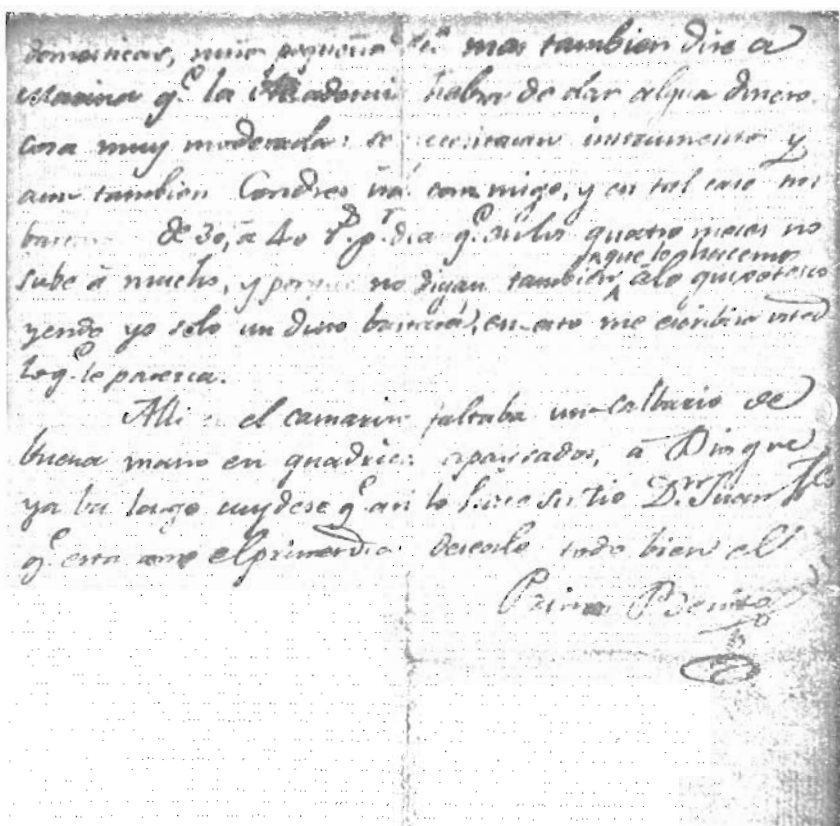 domesticas, mui pequeña mas tambien dire a
Marina q.e la Academi habra de dar algun dinero
cosa muy moderada: se necesitan instrumentos y
aun tambien Condres irá conmigo, y en tal caso nos
de 30, à 40 r.s p.r dia q.e en los quatro meses no
sube à mucho, y porque no digan tambien q.e lo hacemos à lo quixotesco
yendo yo solo un duro bastará, en esto me escribira usted
lo q.e le paresca.
Alli en el camarin faltaba un Calbario de
buena mano en quadricos apaisados, à Dios que
ya ba largo cuydese q.e asi lo hace su tio D.n Juan
q.e esta como el primer dia deseale todo bien el
Primo Benito